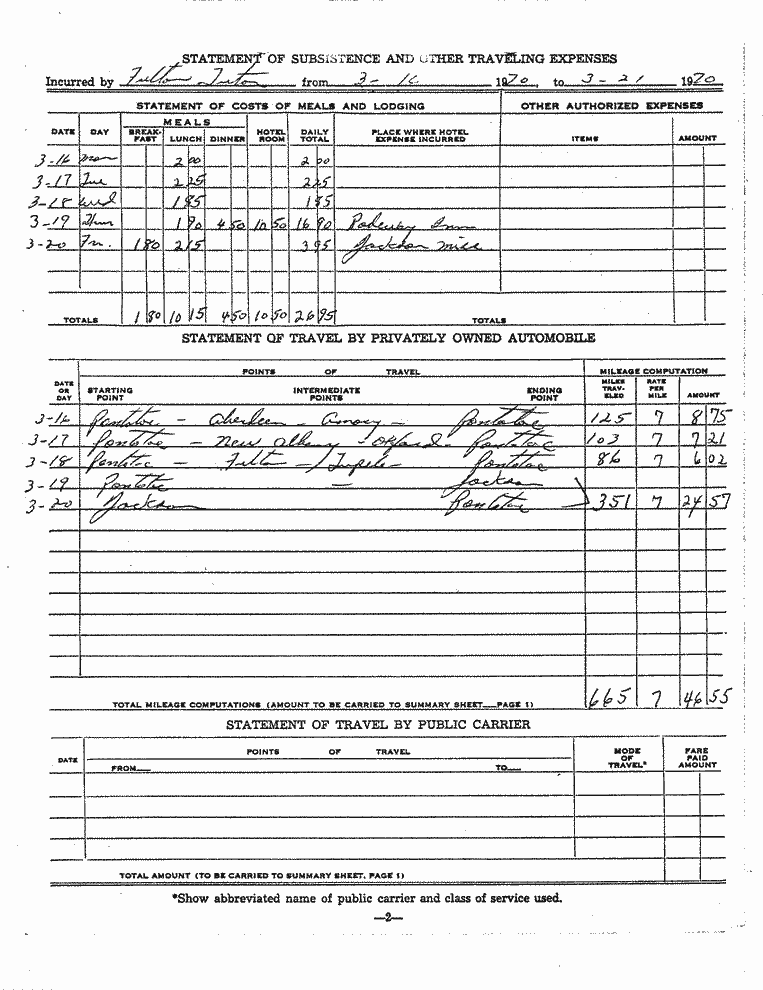 STATEMENT OF SUBSISTENCE AND OTHER TRAVELING EXPENSES
Incurred by Fulton Tutor from 3-16 1970, to 3-21 1970
STATEMENT OF COSTS OF MEALS AND LODGING OTHER AUTHORIZED EXPENSES
MEALS
DATE DAY BREAK-FAST LUNCH DINNER HOTEL ROOM DAILY TOTAL PLACE WHERE HOTEL EXPENSE INCURRED ITEMS AMOUNT
3-16 Mon 2 00 2 00
3-17 Tue 2 25 2 25
3-18 Wed 1 85 1 85
3-19 Thur 1 90 4 50 10 50 16 90 Rodeway Inn
3-20 Fri. 1 80 2 15 3 95 Jackson Miss
TOTALS 1 80 10 15 4 50 10 50 26 95 TOTALS
STATEMENT OF TRAVEL BY PRIVATELY OWNED AUTOMOBILE
POINTS OF TRAVEL MILEAGE COMPUTATION
DATE OR DAY STARTING POINT INTERMEDIATE POINTS ENDING POINT MILES TRAV-ELED RATE PER MILE AMOUNT
3-16 Pontotoc - Aberdeen - Amory - Pontotoc 125 7 8 75
3-17 Pontotoc - New Albany - Oxford - Pontotoc 103 7 7 21
3-18 Pontotoc - Fulton - Tupelo - Pontotoc 86 7 6 02
3-19 Pontotoc - Jackson
3-20 Jackson Pontotoc 351 7 24 57
TOTAL MILEAGE COMPUTATIONS (AMOUNT TO BE CARRIED TO SUMMARY SHEET—PAGE 1) 665 7 46 55
STATEMENT OF TRAVEL BY PUBLIC CARRIER
DATE POINTS OF TRAVEL MODE OF TRAVEL* FARE PAID AMOUNT
FROM— TO—
TOTAL AMOUNT (TO BE CARRIED TO SUMMARY SHEET, PAGE 1)
*Show abbreviated name of public carrier and class of service used.
—2—